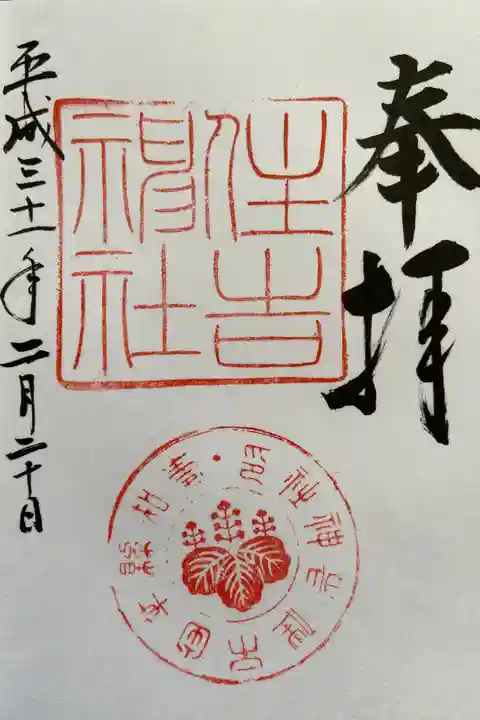 奉拝
住吉
社
平成三十一年二月二十日
愛知縣
神社印